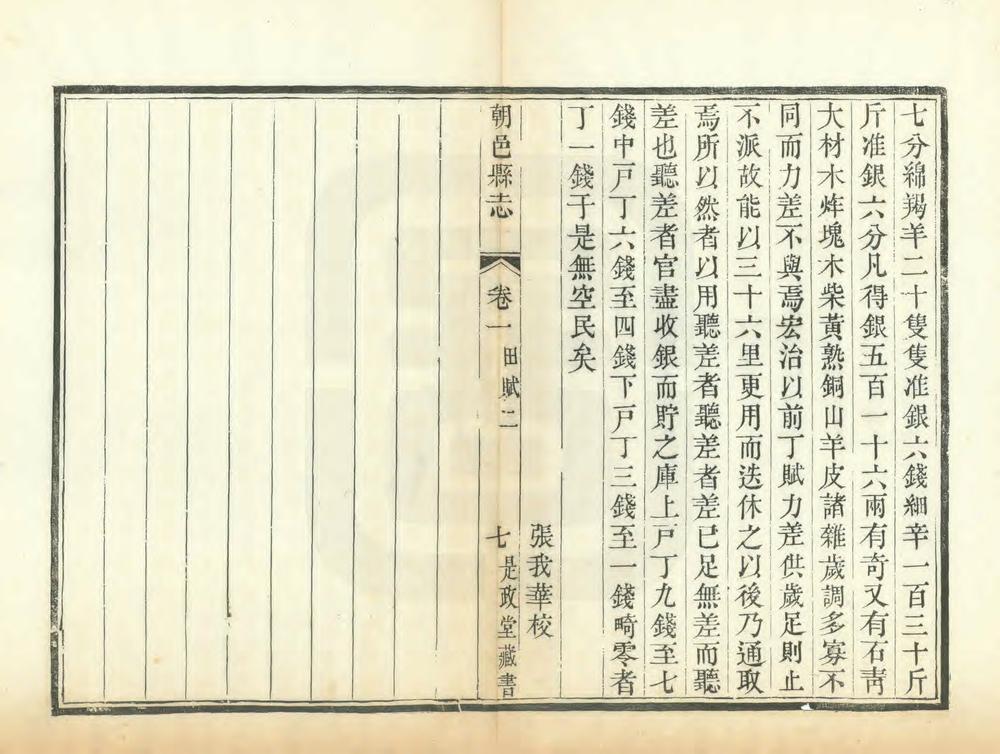 七分綿羯羊二十隻隻准銀六錢細辛一百三十斤
斤准銀六分凡得銀五百一十六兩有奇又有石靑
大材木炸塊木柴黃熟銅山羊皮諸雜歲調多寡不
同而力差不與焉宏治以前丁賦力差供歲足則止
不派故能以三十六里更用而迭休之以後乃通取
焉所以然者以用聽差者聽差者差已足無差而聽
差也聽差者官盡收銀而貯之庫上戸丁九錢至七
錢中戸丁六錢至四錢下戸丁三錢至一錢畸零者
丁一錢于是無空民矣
張我華校
朝邑縣志 卷一 田賦二 七 是政堂藏書